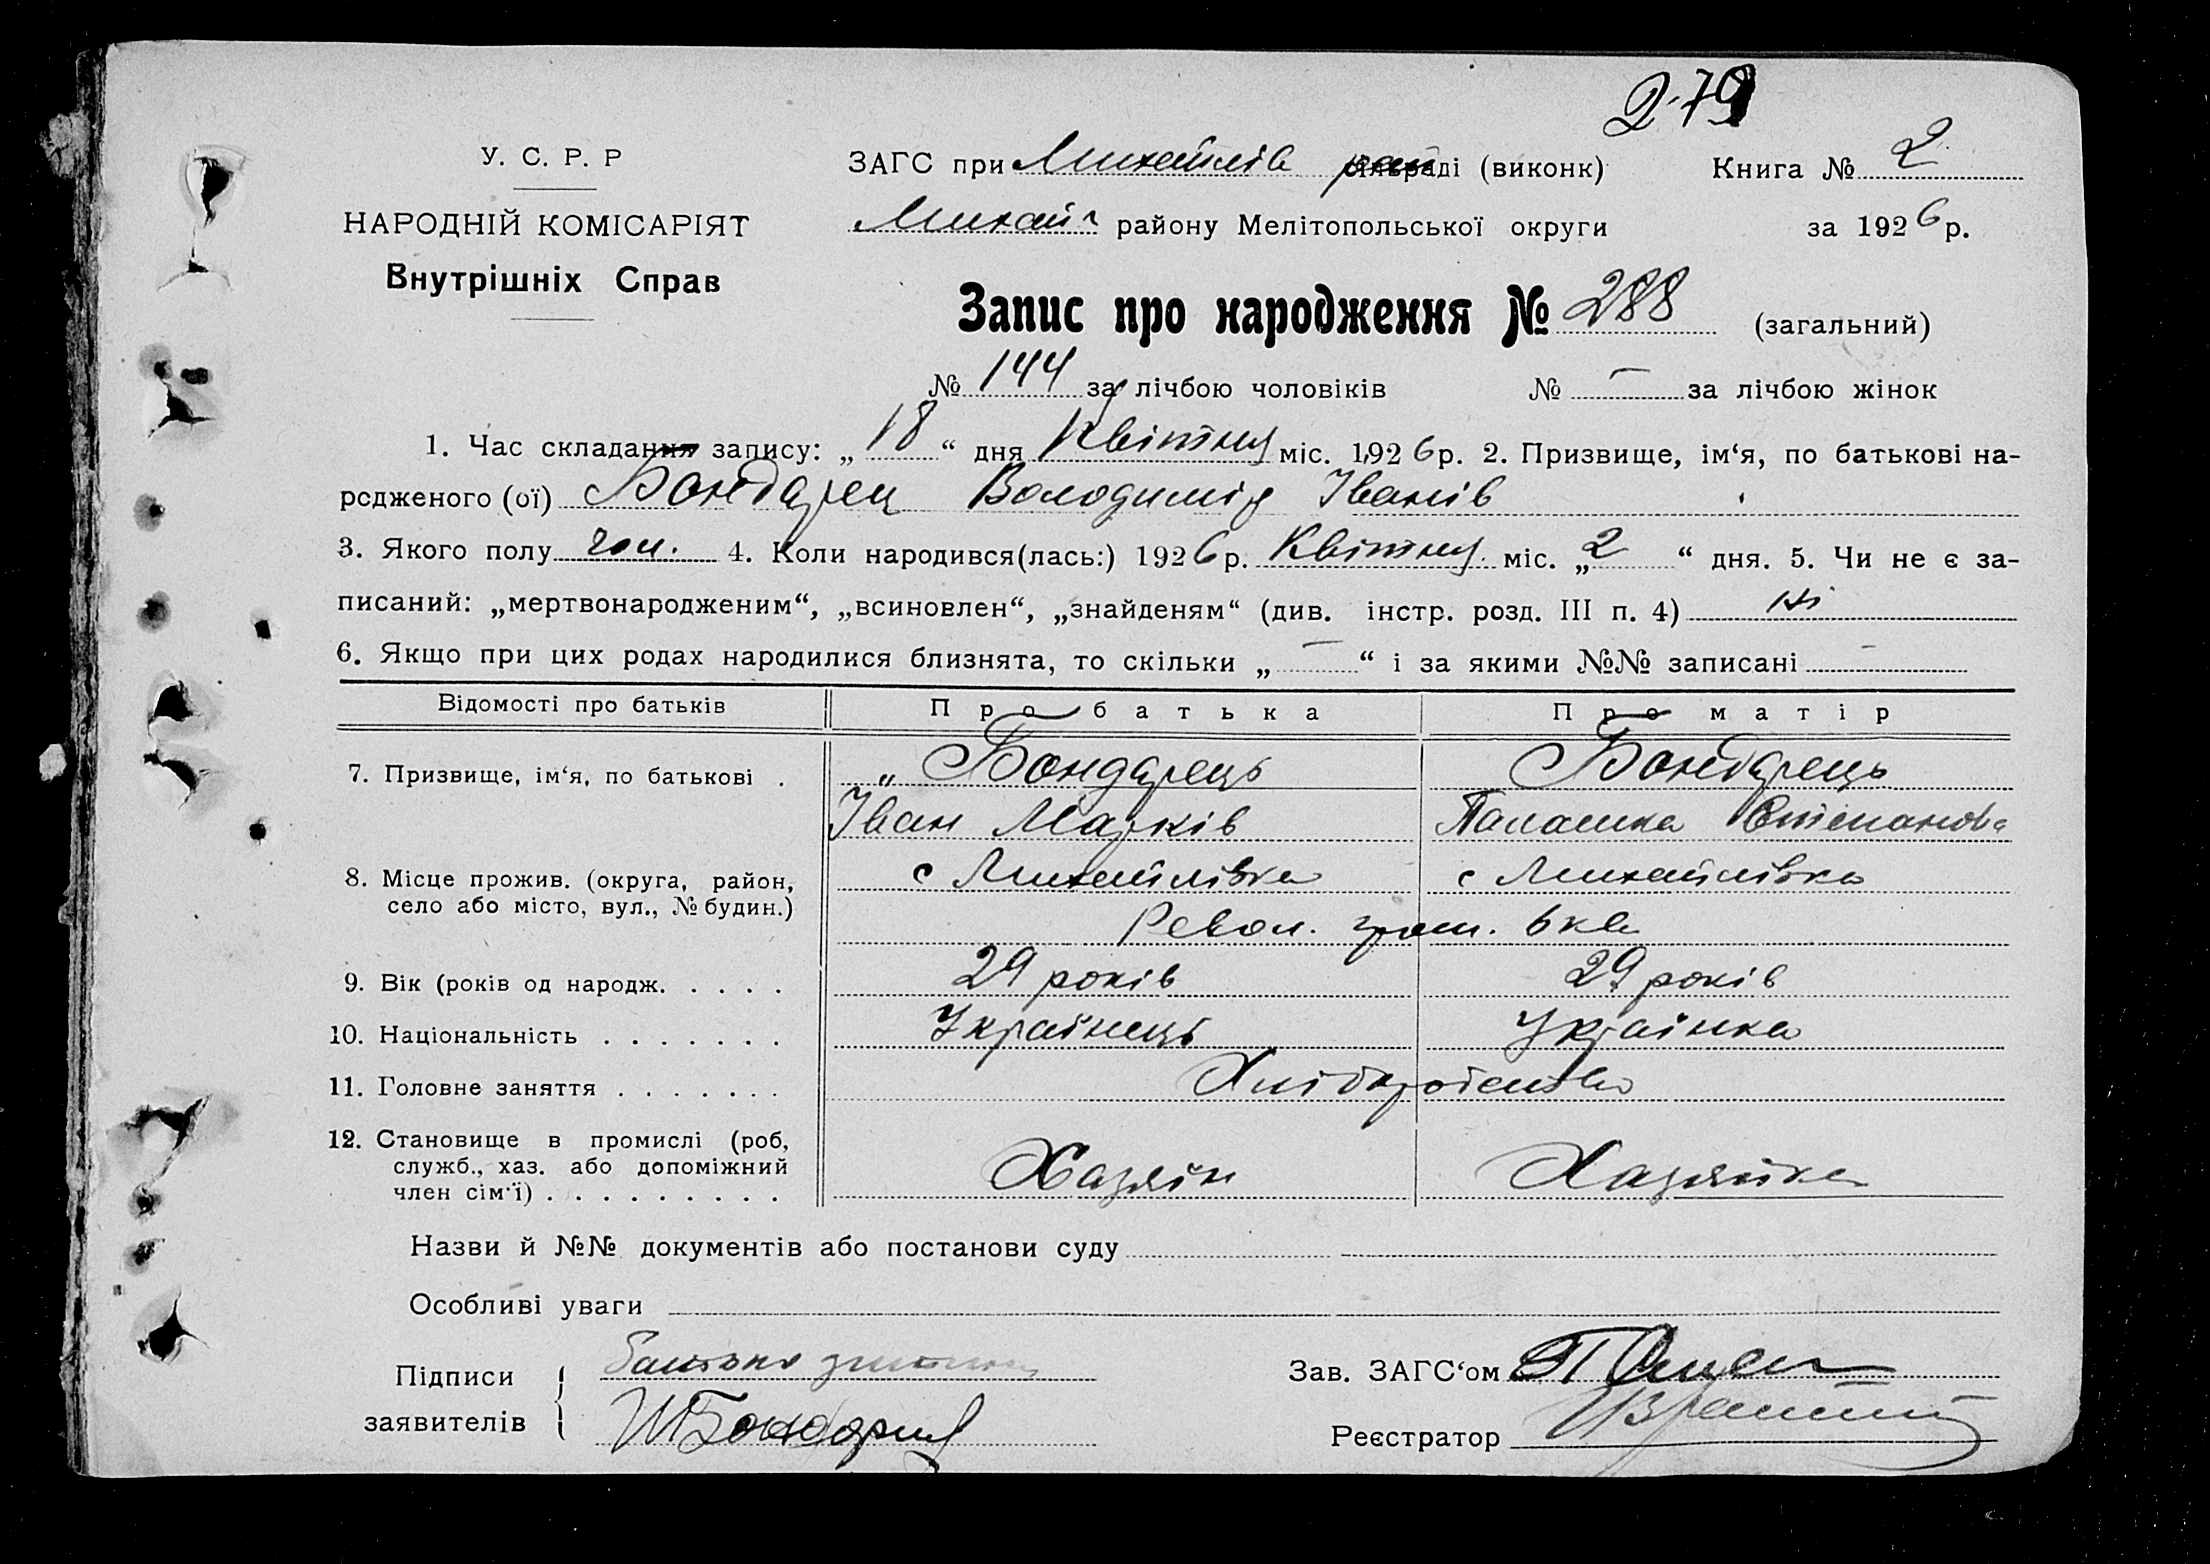 279
У. С. Р. Р
НАРОДНІЙ КОМІСАРІЯТ
Внутрішніх Справ
ЗАГС при Михайлів рай сільраді (виконк) Книга № 2
Михай району Мелітопольської округи за 1926 р.
Запис про народження № 288 (загальний)
№ 144 за лічбою чоловіків № — за лічбою жінок
1. Час складання запису: „ 18 “ дня Квітня міс. 1926 р. 2. Призвище, ім‘я, по батькові на-
родженого (ої) Бондарец Володимір Іванів
3. Якого полу чол. 4. Коли народився(лась:) 1926 р. Квітня міс. „ 2 “ дня. 5. Чи не є за-
писаний: „мертвонародженим“, „всиновлен“, „знайденям“ (див. інстр. розд. III п. 4) ні
6. Якщо при цих родах народилися близнята, то скільки „ — “ і за якими №№ записані —
Відомості про батьків Про батька Про матір
7. Призвище, ім‘я, по батькові . „ Бондарець Бондарець
Іван Марків Палашка Степанова
8. Місце прожив. (округа, район, с Михайлівка с Михайлівка
село або місто, вул., № будин.) Револ. 6 кв
9. Вік (років од народж. . . . . 29 років 29 років
10. Національність . . . . . . . Українець Українка
11. Головне заняття . . . . . . . Хліборобство
12. Становище в промислі (роб,
служб., хаз. або допоміжний Хазяїн Хазяйка
член сім‘ї) . . . . . . . . .
Назви й №№ документів або постанови суду
Особливі уваги
Підписи Батько дитини Зав. ЗАГС‘ом
заявителів Реєстратор